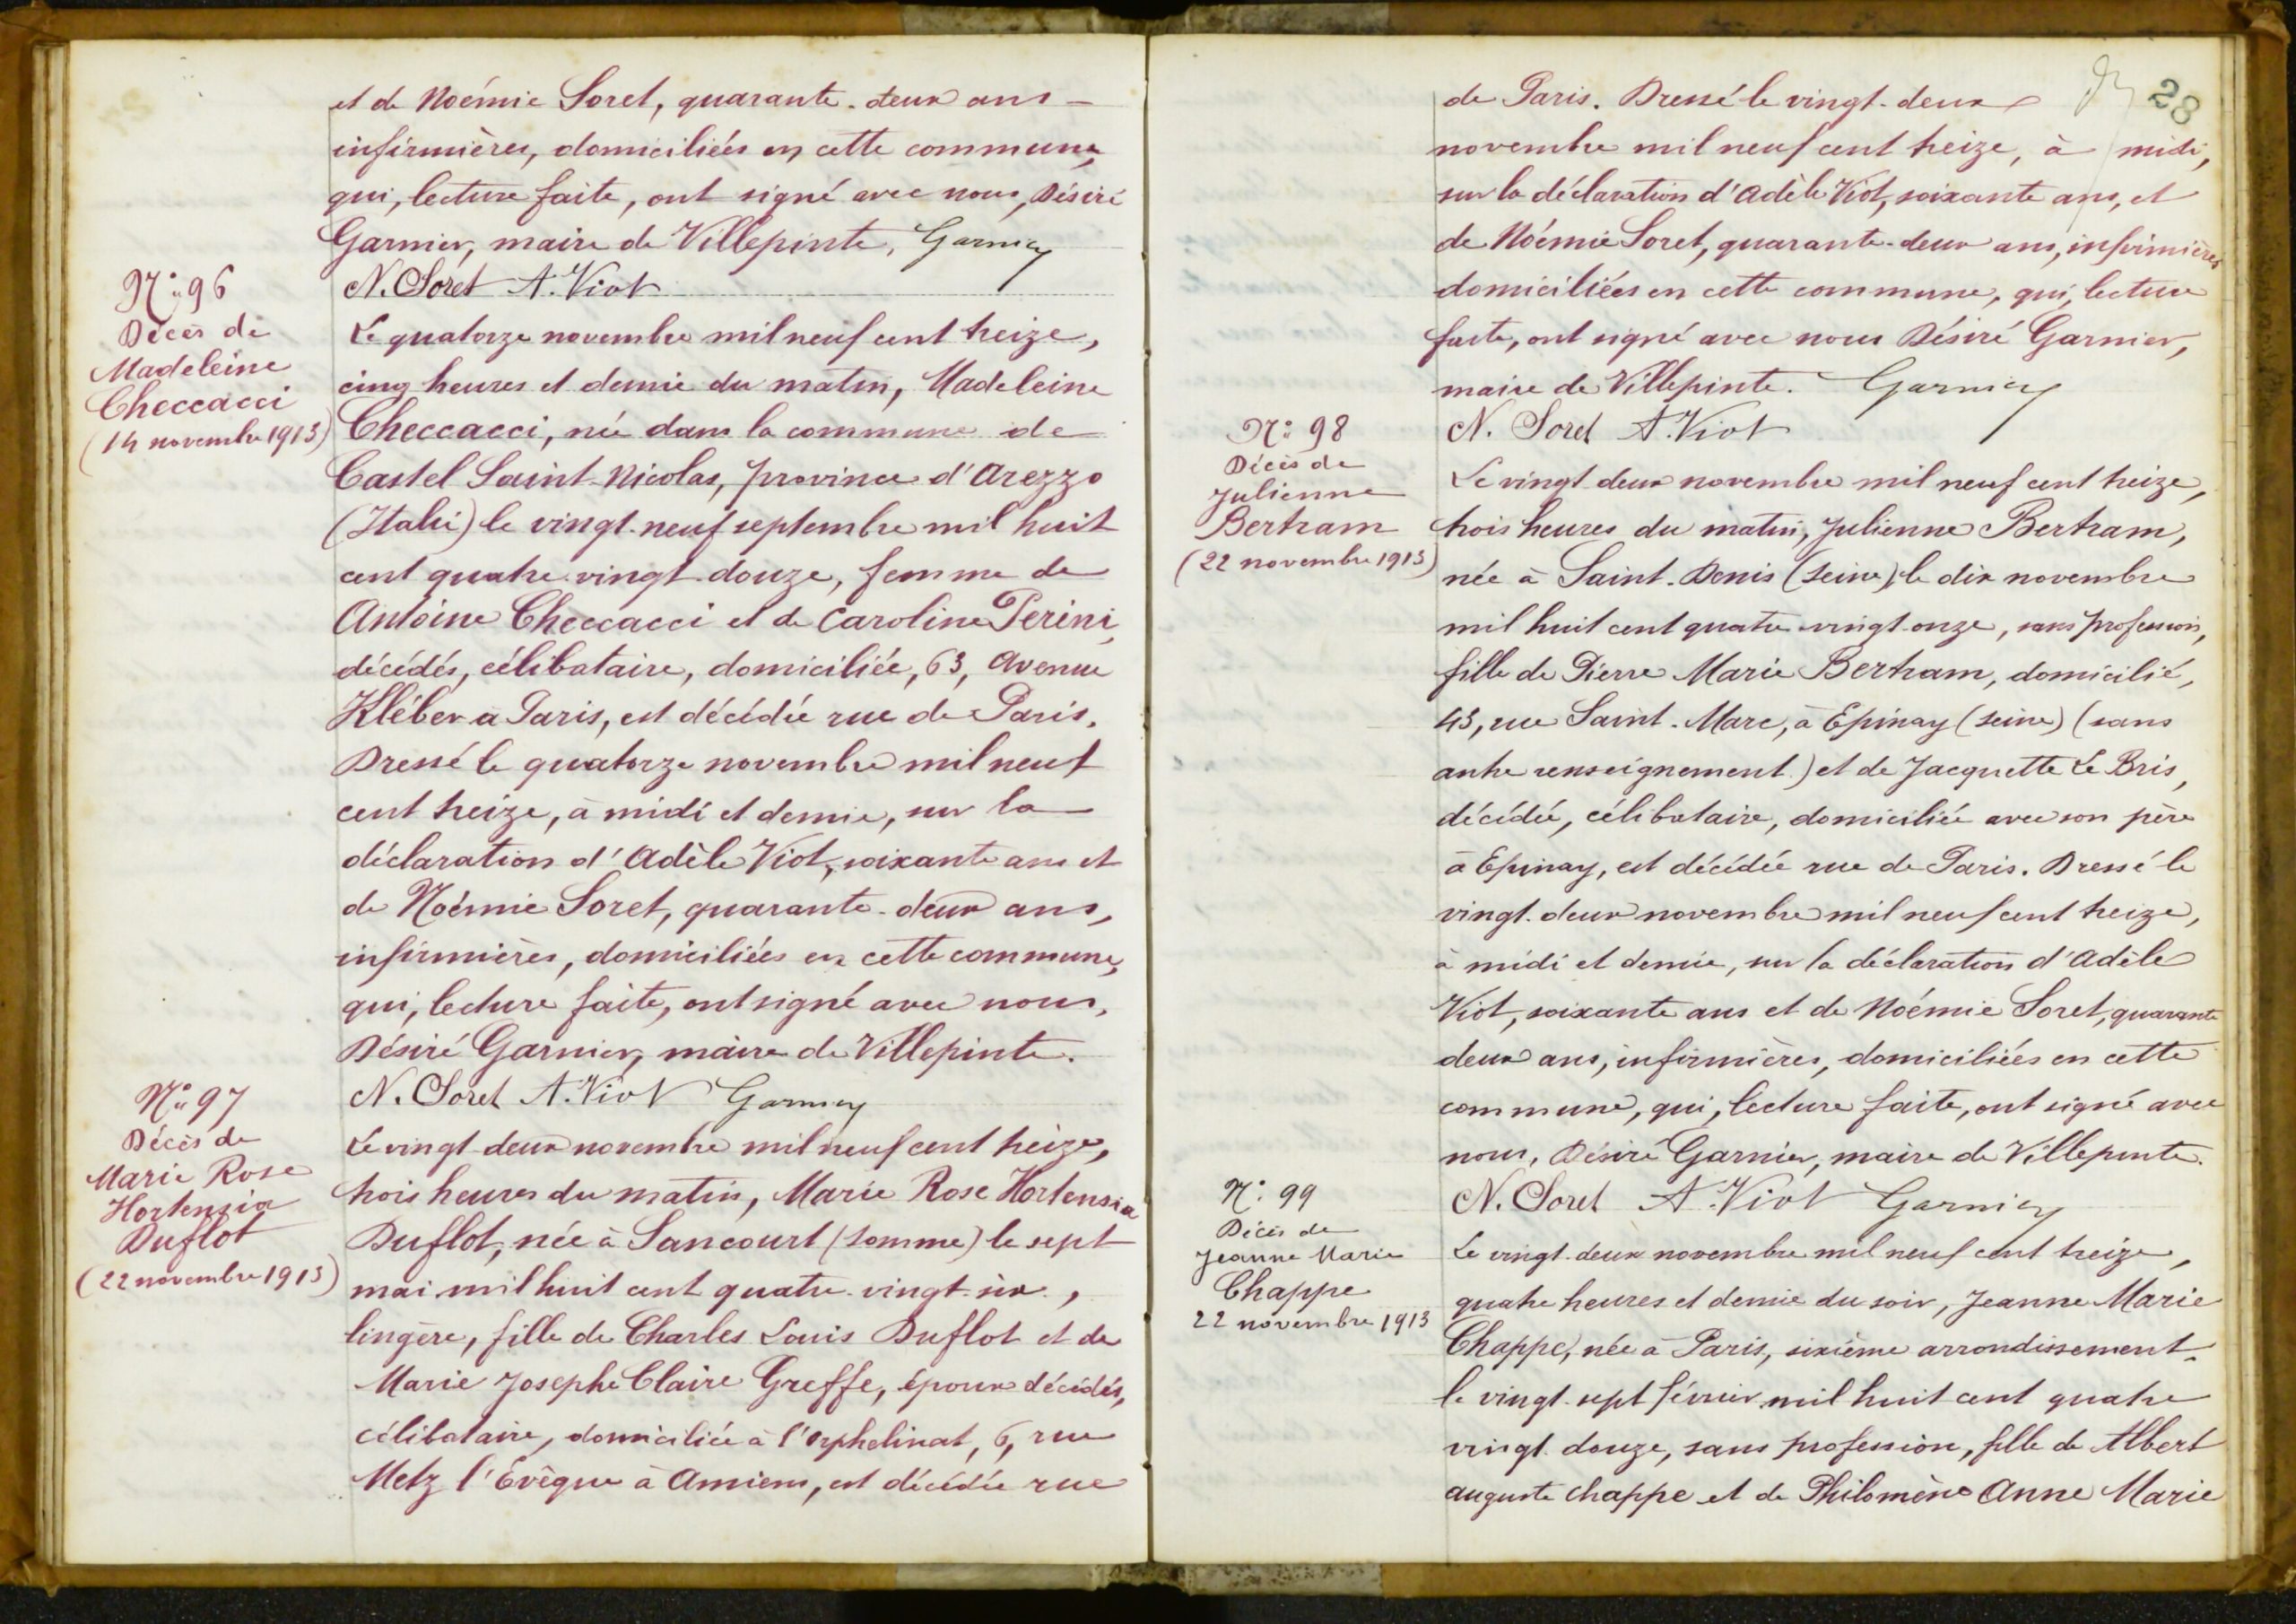 et de Noémie Soret, quarante-deux ans -
infirmières, domiciliées en cette commune,
qui, lecture faite, ont signé avec nous, Désiré
Garnier, maire de Villepinte, Garnier
N. Soret A. Viot
N° 96
Décès de
Madeleine
Checcacci
(14 novembre 1913)
Le quatorze novembre mil neuf cent treize,
cinq heures et demie du matin, Madeleine
Checcacci, née dans la commune de
Castel Saint-Nicolas, province d'Arezzo
(Italie) le vingt-neuf septembre mil huit
cent quatre-vingt-douze, femme de
Antoine Checcacci et de Caroline Perini,
décédés, célibataire, domiciliée, 63, Avenue
Kléber a Paris, est décédée rue de Paris.
Dressé le quatorze novembre mil neuf
cent treize, à midi et demie, sur la
déclaration d'Adèle Viot, soixante ans et
de Noémie Soret, quarante-deux ans,
infirmières, domiciliées en cette commune,
qui, lecture faite, ont signé avec nous,
Désiré Garnier, maire de Villepinte.
N. Soret A. Viot Garnier
N° 97
Décès de
Marie Rose
Hortensia
Duflot
(22 novembre 1913)
Le vingt-deux novembre mil neuf cent treize,
trois heures du matin, Marie Rose Hortensia
Duflot, née à Sancourt (Somme) le sept
mai mil huit cent quatre-vingt-six,
lingère, fille de Charles Louis Duflot et de
Marie Josephe Claire Greffe, époux décédés,
célibataire, domiciliée à l'orphelinat, 6, rue
Metz l'Évêque à Amiens, est décédée rue
28
de Paris. Dressé le vingt-deux
novembre mil neuf cent treize, à midi,
sur la déclaration d'Adèle Viot, soixante ans, et
de Noémie Soret, quarante-deux ans, infirmières
domiciliées en cette commune, qui, lecture
faite, ont signé avec nous Désiré Garnier,
maire de Villepinte. Garnier
N. Soret A. Viot
N° 98
Décès de
Julienne
Bertram
(22 novembre 1913)
Le vingt-deux novembre mil neuf cent treize,
trois heures du matin, Julienne Bertram,
née à Saint-Denis (Seine), le dix novembre
mil huit cent quatre-vingt-onze, sans profession,
fille de Pierre Marie Bertram, domicilié,
43, rue Saint-Marc, à Epinay (Seine) (sans
autre renseignement) et de Jacquette Le Bris,
décédée, célibataire, domiciliée avec son père
à Epinay, est décédée rue de Paris. Dressé le
vingt-deux novembre mil neuf cent treize,
à midi et demie, sur la déclaration d'Adèle
Viot, soixante ans et de Noémie Soret, quarante
deux ans, infirmières, domiciliées en cette
commune, qui, lecture faite, ont signé avec
nous, Désiré Garnier, maire de Villepinte.
N. Soret A. Viot Garnier
N° 99
Décès de
Jeanne Marie
Chappe
22 novembre 1913
Le vingt-deux novembre mil neuf cent treize,
quatre heures et demie du soir, Jeanne Marie
Chappe, née à Paris, sixième arrondissement,
le vingt-sept février mil huit cent quatre
vingt-douze, sans profession, fille de Albert
auguste chappe et de Philomène Anne Marie